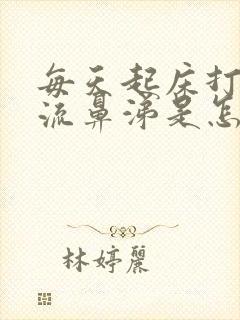 每天起床打
流鼻涕是怎
林婷麗